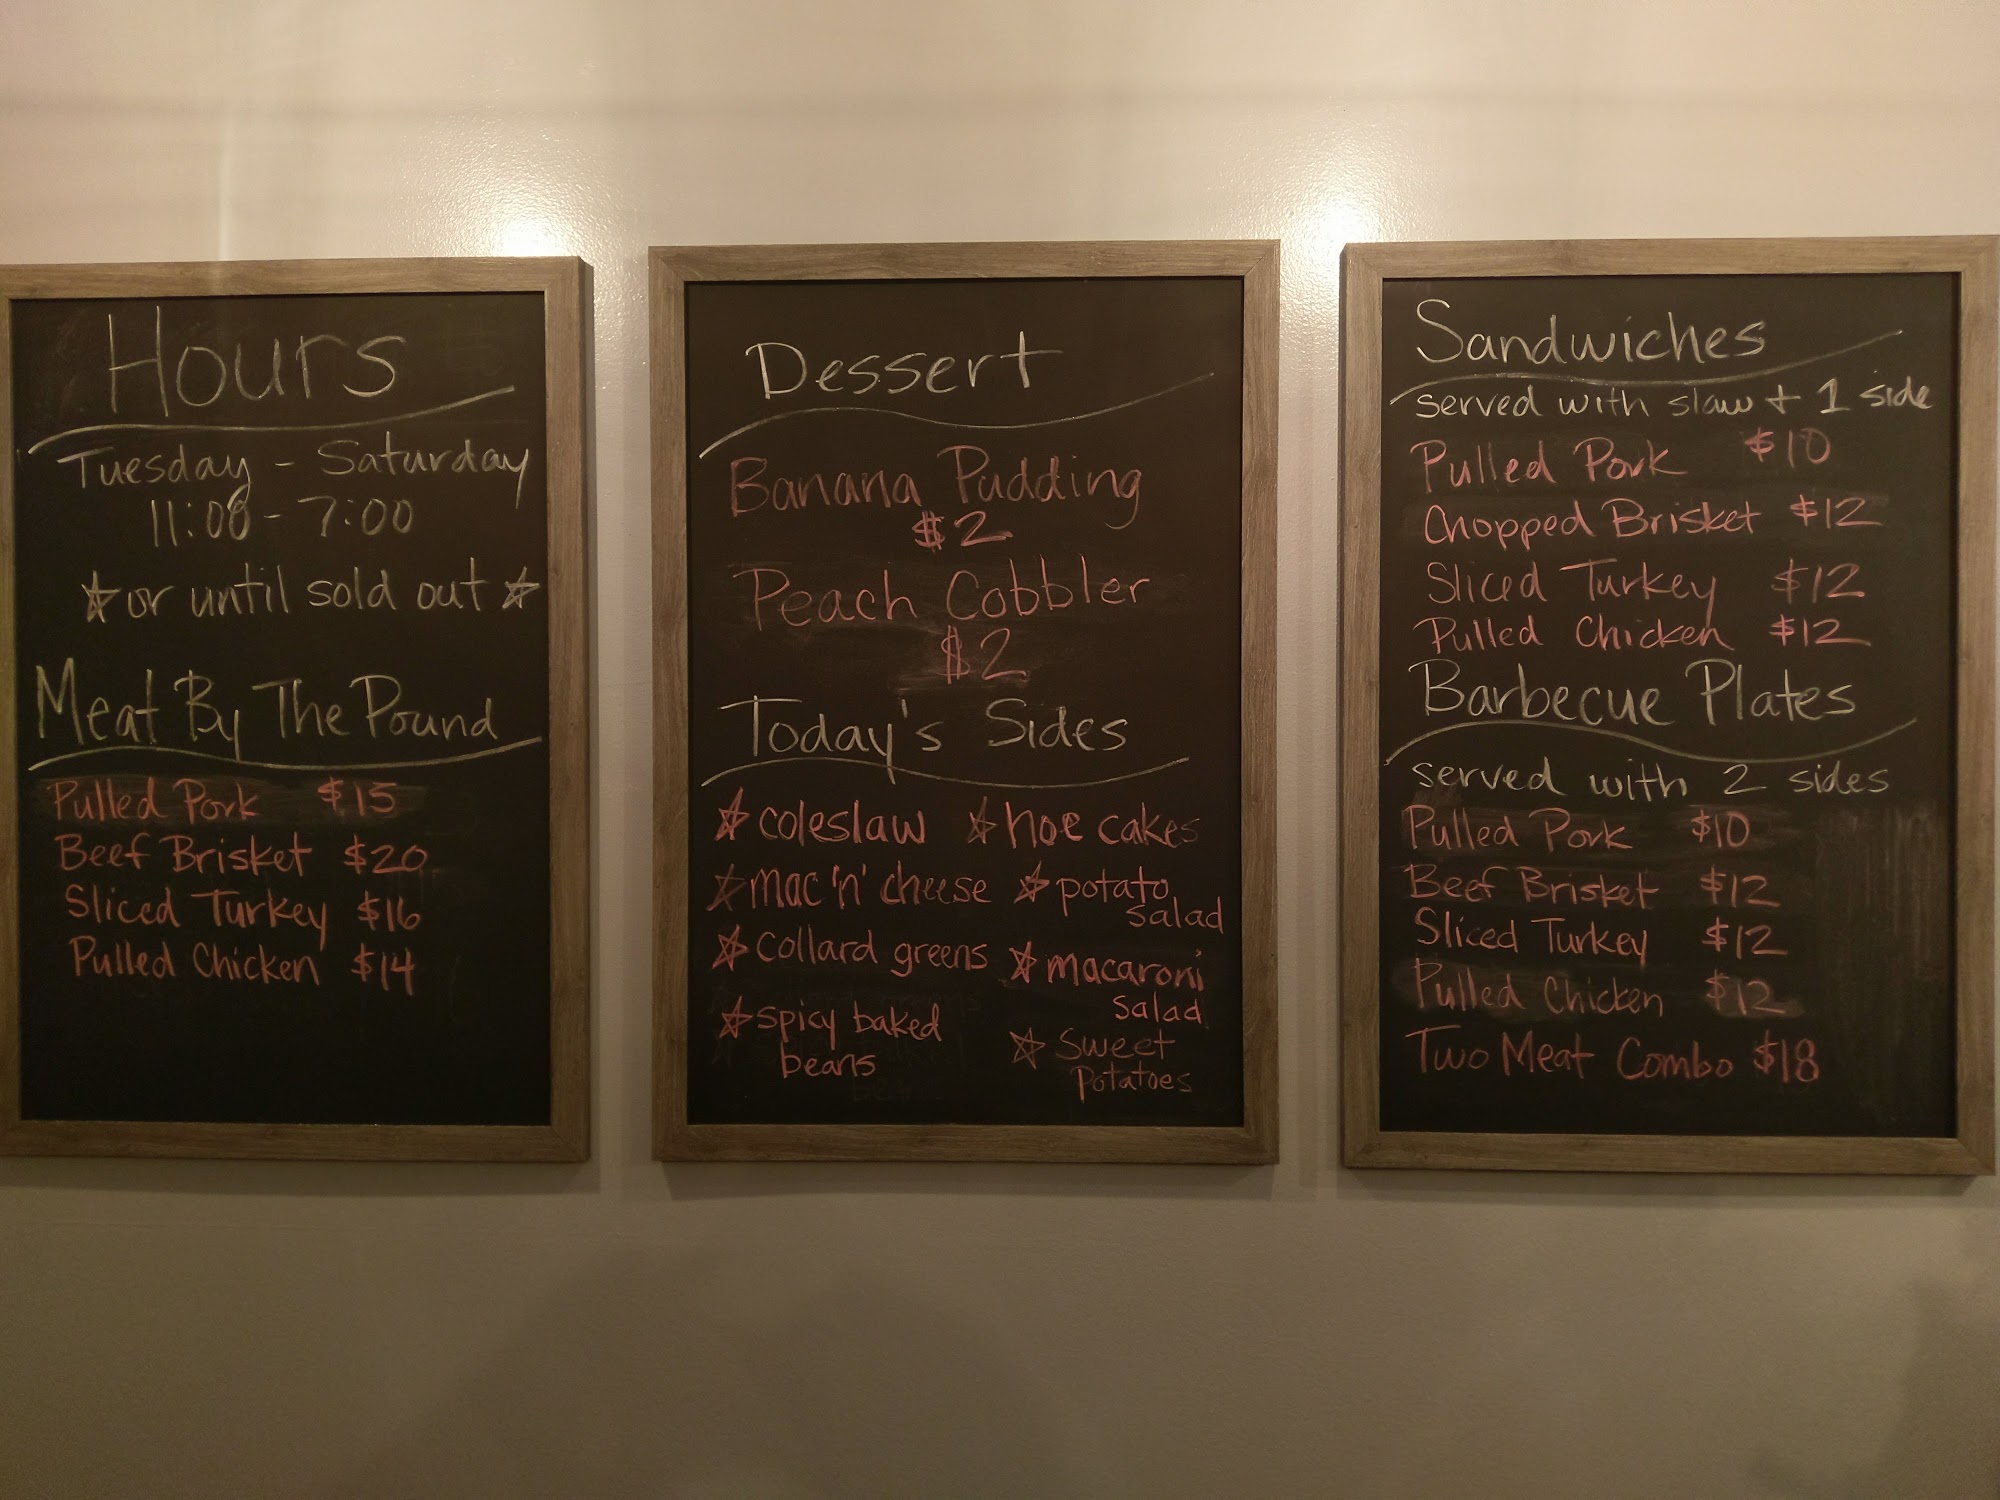 Hours
Tuesday - Saturday
11:00 - 7:00
☆ or until sold out ☆
Meat By The Pound
Pulled Pork $15
Beef Brisket $20
Sliced Turkey $16
Pulled Chicken $14
Dessert
Banana Pudding
$2
Peach Cobbler
$2
Today's Sides
☆ coleslaw ☆ hoe cakes
☆ mac 'n' cheese ☆ potato
salad
☆ collard greens ☆ macaroni
salad
☆ spicy baked
beans
☆ sweet
potatoes
Sandwiches
served with slaw + 1 side
Pulled Pork $10
Chopped Brisket $12
Sliced Turkey $12
Pulled Chicken $12
Barbecue Plates
served with 2 sides
Pulled Pork $10
Beef Brisket $12
Sliced Turkey $12
Pulled Chicken $12
Two Meat Combo $18